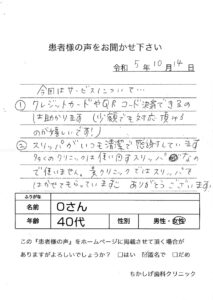 患者様の声をお聞かせ下さい
令和 5年 10月 14日
今回はサービスについて…
① クレジットカードやQRコード決済できるの
は助かります（少額でも対応頂ける
のが嬉しいです!）
② スリッパがいつも清潔で感動しています
クリニックは使い回すスリッパ なの
で使いません。貴クリニックではスリッパで
はかせてもらっています ありがとうございます
ふりがな
お名前
Oさん
年齢
40代
性別
男性・女性
この『患者様の声』をホームページに掲載させて頂く場合が
ありますがよろしいでしょうか？ □はい □匿名で □だめ
ちかしげ歯科クリニック